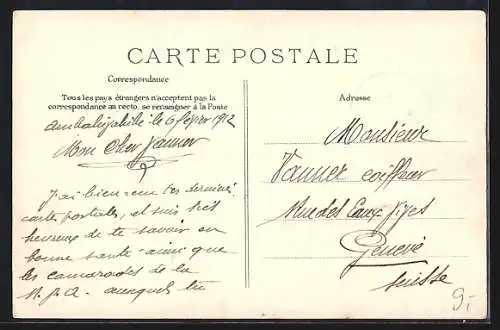 CARTE POSTALE
Correspondance
Tous les pays étrangers n'acceptent pas la
correspondance au recto. se renseigner à la Poste
Adresse
le 6 février 1912
Mon Cher Vanner
J'ai bien reçu tes dernières
cartes postales, et suis très
heureux de te savoir en
bonne santé ainsi que
les camarades de la
auxquels tu
Monsieur
Vanner coiffeur
Rue des Eaux Vives
Genève
Suisse
9.-